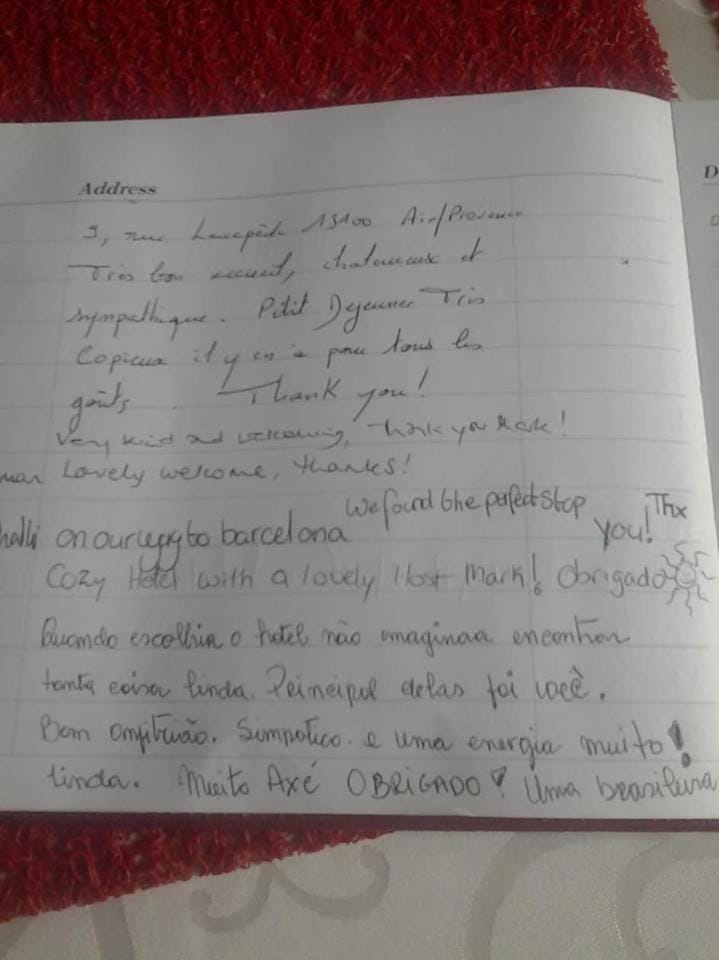 Address
D
9, rue Lacepède 13100 Aix/Provence
Très bon accueil, chaleureux et
sympathique. Petit Dejeuner Très
Copieux il y en a pour tous les
goûts. Thank you!
Very kind and welcoming, Thank you Mark!
man Lovely welcome, thanks!
We found the perfect stop
on our way to barcelona
Thx
you!
Cozy Hotel with a lovely Host Mark! Obrigado
Quando escolhia o hotel não imaginaa encontrar
tanta coisa linda. Principal delas foi você.
Bom anfitrião. Simpatico. e uma energia muito!
linda. Muito AXÉ OBRIGADO! Uma brasileira